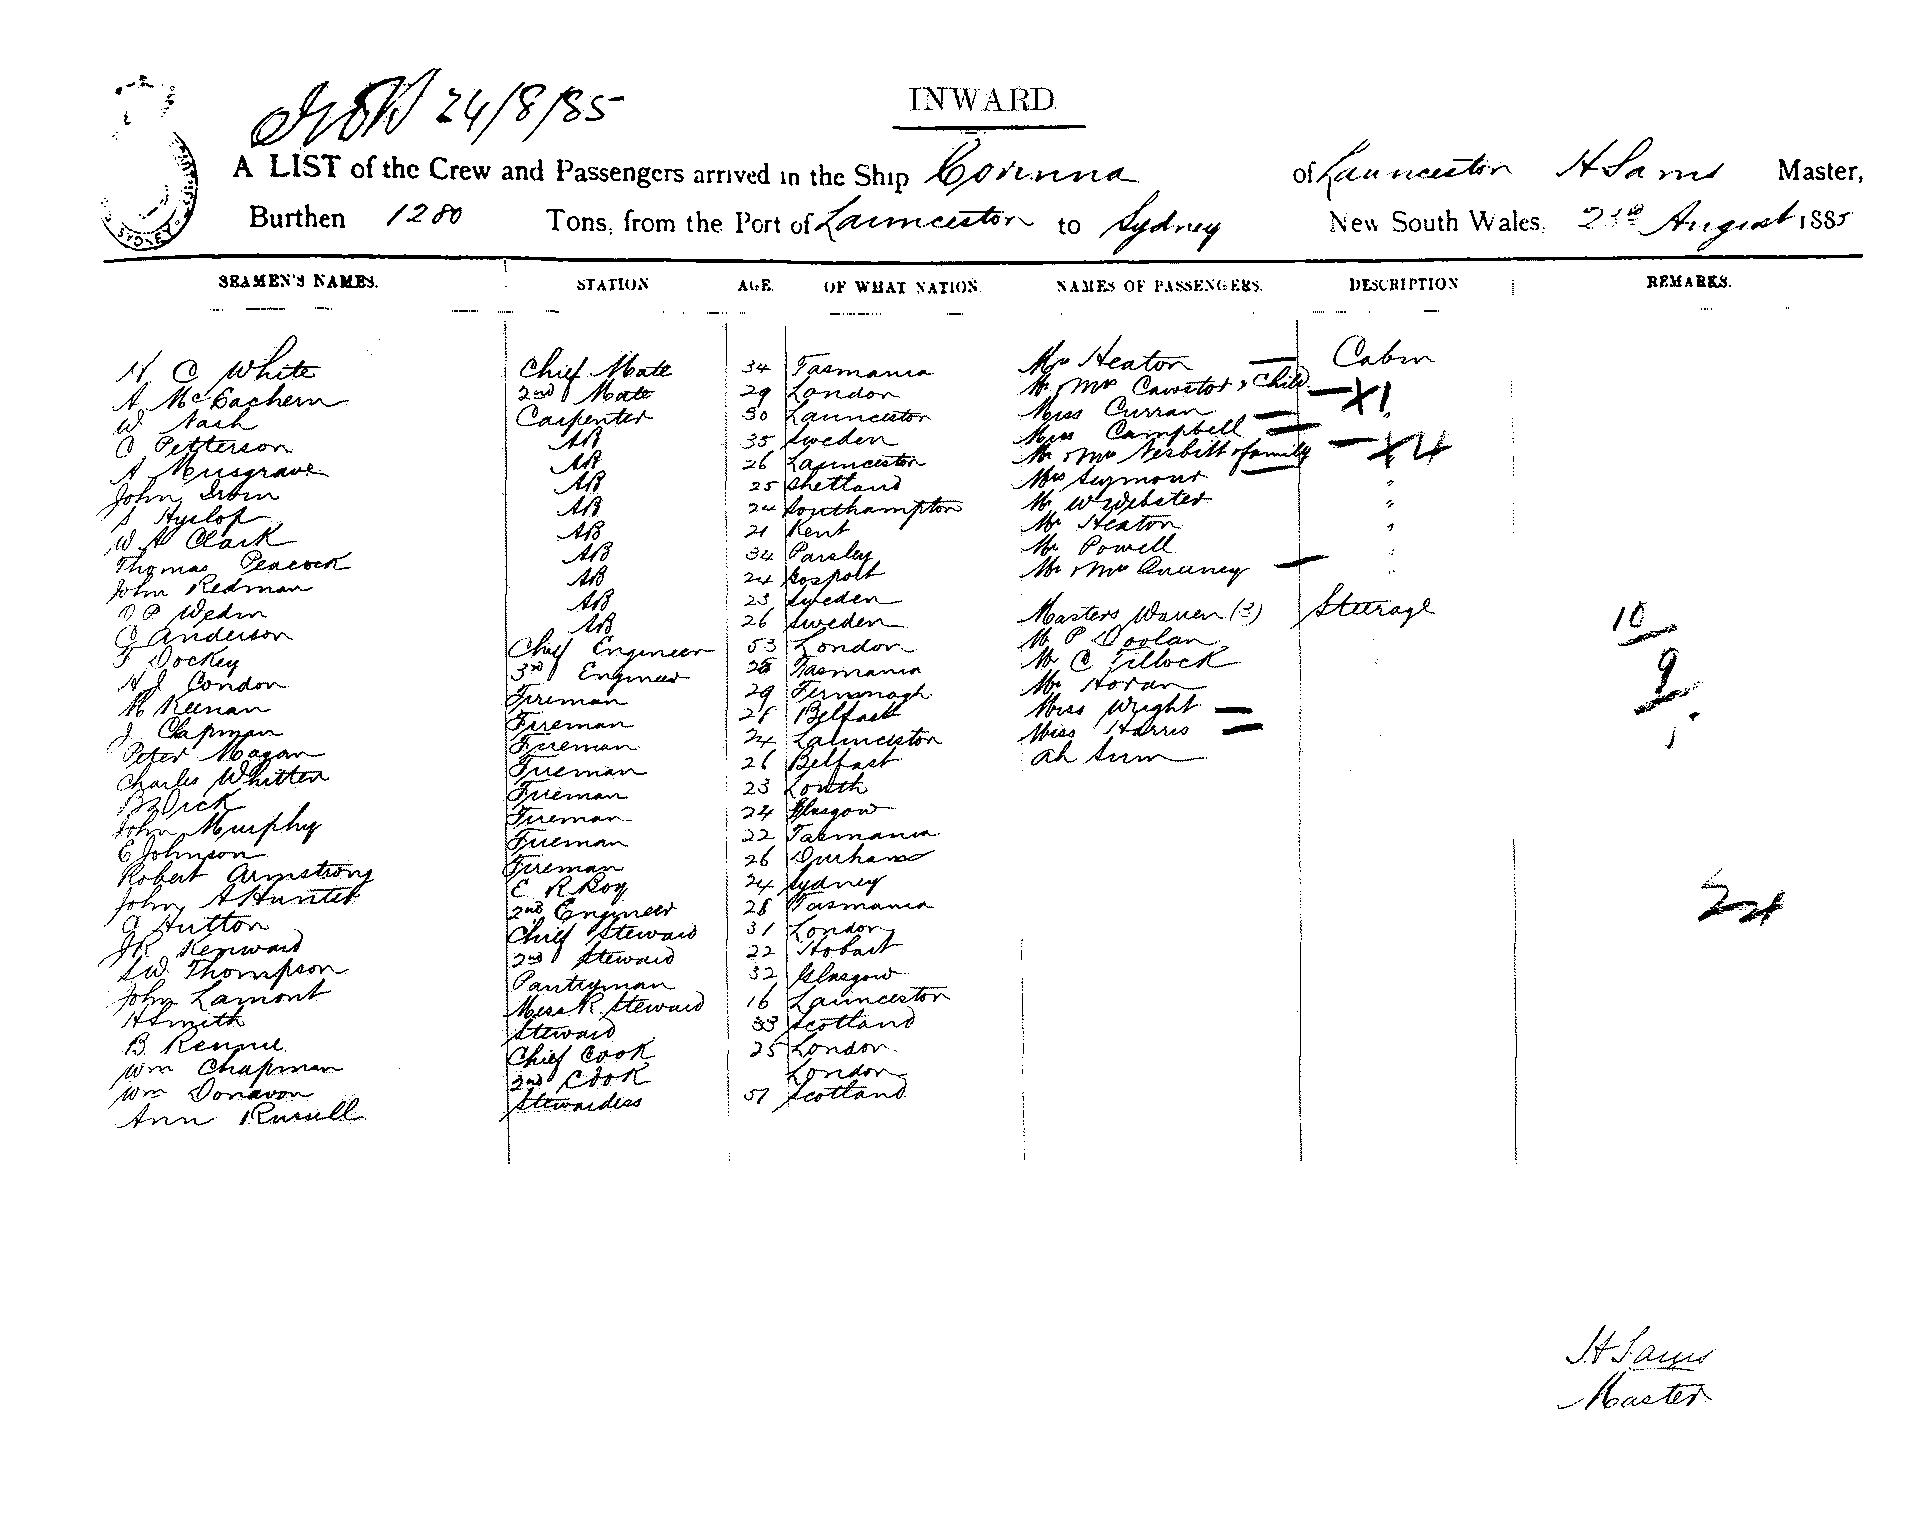 24/8/85
INWARD
A LIST of the Crew and Passengers arrived in the Ship Corinna of Launceston H Sams Master,
Burthen 1280 Tons, from the Port of Launceston to Sydney New South Wales, 23rd August 1885
SEAMEN'S NAMES. STATION AGE. OF WHAT NATION. NAMES OF PASSENGERS. DESCRIPTION REMARKS.
H C White Chief Mate 34 Tasmania Mrs Heaton Cabin
A McEachern 2nd Mate 29 London Mr & Mrs Cawston & Child X1
W Nash Carpenter 30 Launceston Miss Curran
C Petterson AB 35 Sweden Miss Campbell
A Musgrave AB 26 Launceston Mr & Mrs Nesbitt & family X4
John Irvin AB 25 Shetland Mrs Seymour "
S Hyslop AB 24 Southampton Mr W Webster "
W A Clark AB 21 Kent Mr Heaton "
Thomas Peacock AB 34 Parsley Mr Powell "
John Redman AB 24 Gosport Mr & Mrs "
P Wedin AB 23 Sweden Masters Warren (3) Steerage
C Anderson AB 26 Sweden Mr P Doolan 10
F Dockey Chief Engineer 53 London Mr C Tillock 9
H J Condon 3rd Engineer Tasmania Mr Horan
M Keenan Fireman 29 Fermnagh Miss Wright
J Chapman Fireman Belfast Miss Harris 1
Peter Magan Fireman 24 Launceston Ah Sum
Charles Whitten Fireman 26 Belfast
Dick Fireman 23 Louth
John Murphy Fireman 24 Glasgow
E Johnson Fireman 22 Tasmania
Robert Armstrong Fireman 26 Durham
John A Hunter E R Boy 24 Sydney
G Hutton 2nd Engineer 28 Tasmania 24
J R Kenward Chief Steward 31 London
S W Thompson 2nd Steward 22 Hobart
John Lamont Pantryman 32 Glasgow
H Smith Mess R Steward 16 Launceston
B Rennie Steward 33 Scotland
Wm Chapman Chief Cook 25 London
Wm Donavon 2nd Cook London
Ann Russell Stewardess 51 Scotland
H Sams
Master
SYDNEY